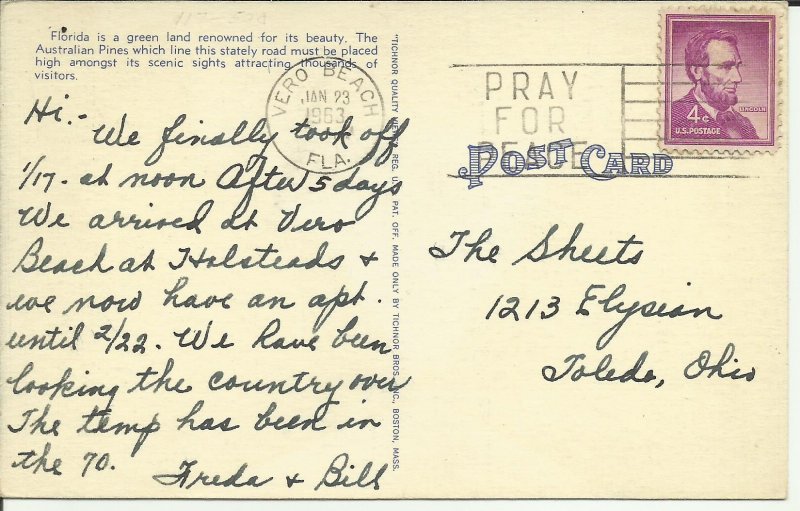 Florida is a green land renowned for its beauty. The
Australian Pines which line this stately road must be placed
high amongst its scenic sights attracting thousands of
visitors.
Hi.-
We finally took off
1/17. at noon After 5 days
We arrived at Vero
Beach at Halsteads +
we now have an apt.
until 2/22. We have been
looking the country over
The temp has been in
the 70.
Freda + Bill
"TICHNOR QUALITY VIEWS," REG. U. S. PAT. OFF. MADE ONLY BY TICHNOR BROS., INC., BOSTON, MASS.
VERO BEACH
JAN 23
1963
FLA.
PRAY
FOR
PEACE
4¢
LINCOLN
U.S. POSTAGE
POST CARD
The Sheets
1213 Elysian
Toledo, Ohio